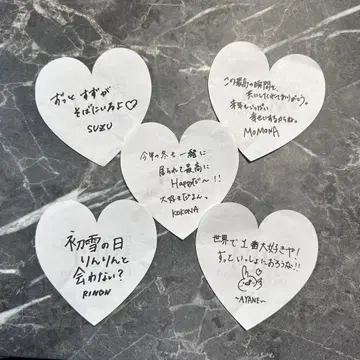 ずっと すずが
そばにいるよ♡
SUZU
この最高の瞬間を、
共にしてくれてありがとう。
来年もいっぱい
幸せにするからね。
MOMONA
今年の冬も一緒に
居られて最高に
Happyだ〜!!
大好きぴょん。
KOKONA
初雪の日
りんりんと
会わない?
RINON
世界で1番大好きや!
ずっといっしょにおろうな!!
~AYANE~